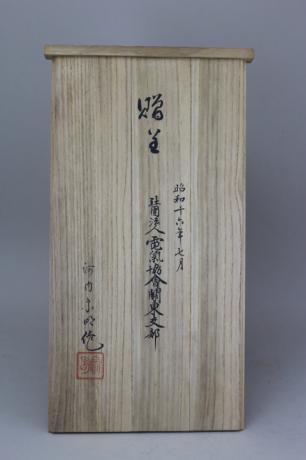 贈呈
昭和十六年七月
社團法人電氣協會關東支部
河内宗明